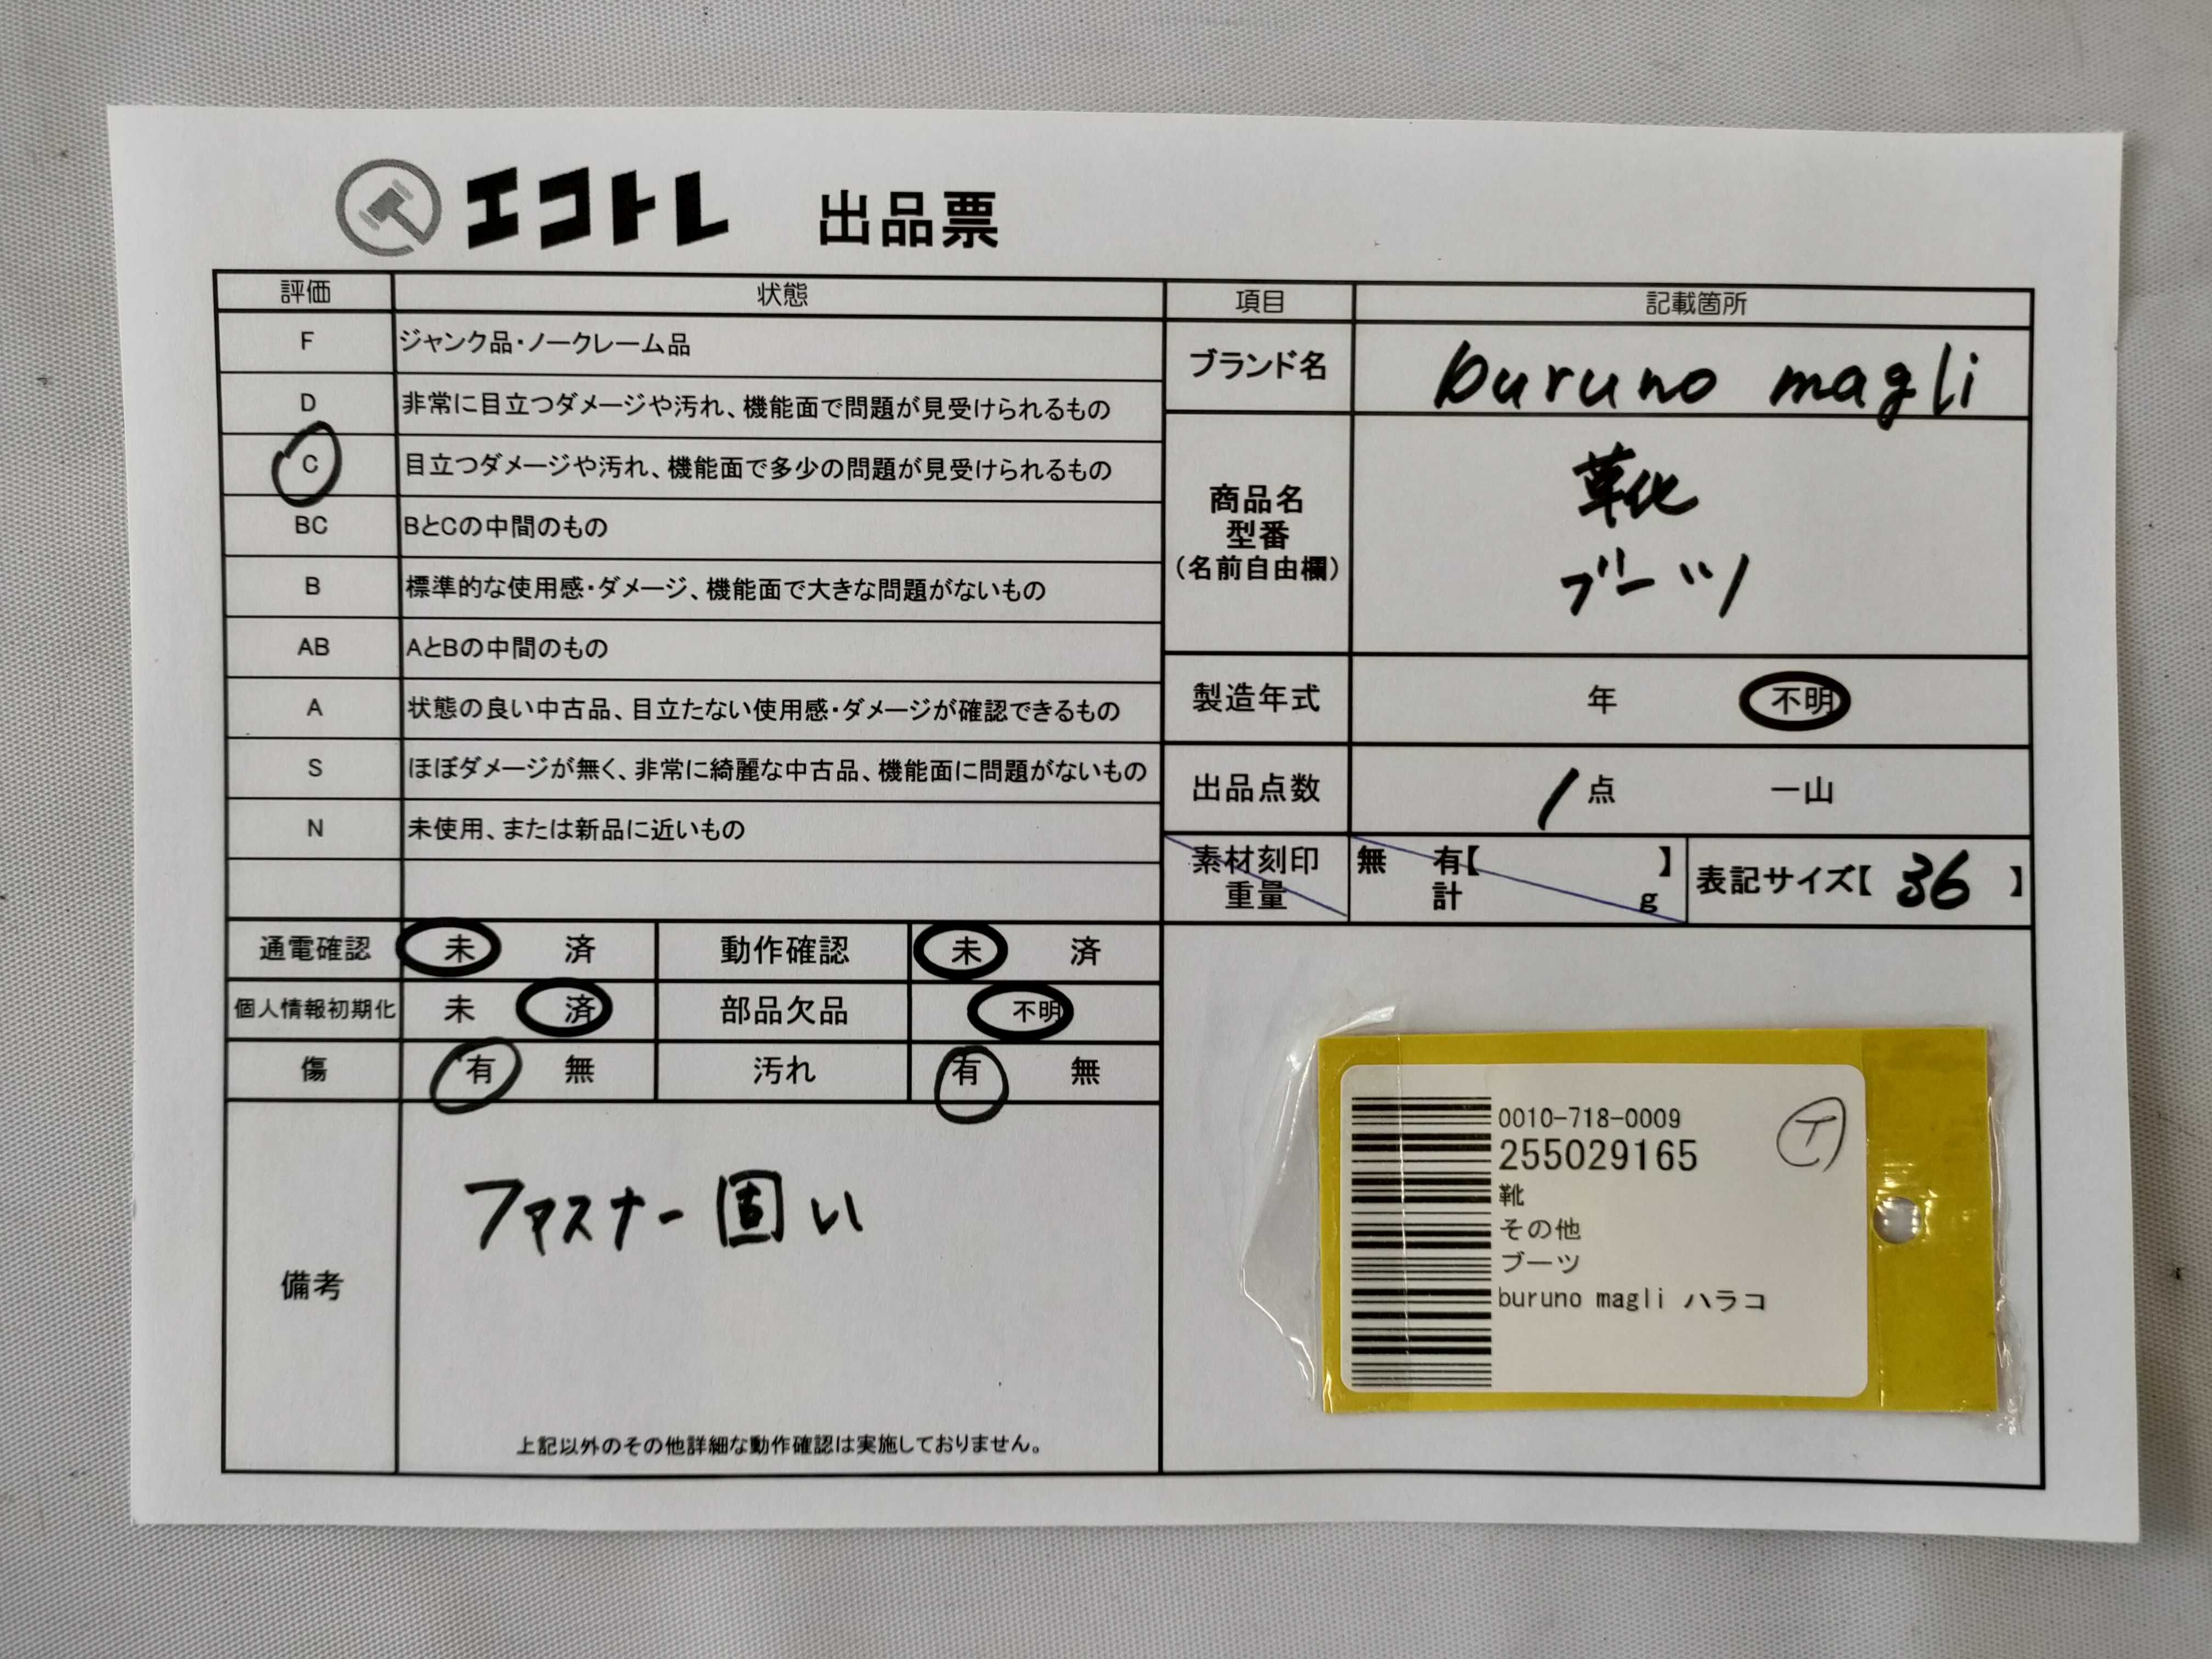 エコトレ 出品票
評価 状態
F ジャンク品・ノークレーム品
D 非常に目立つダメージや汚れ、機能面で問題が見受けられるもの
C 目立つダメージや汚れ、機能面で多少の問題が見受けられるもの
BC BとCの中間のもの
B 標準的な使用感・ダメージ、機能面で大きな問題がないもの
AB AとBの中間のもの
A 状態の良い中古品、目立たない使用感・ダメージが確認できるもの
S ほぼダメージが無く、非常に綺麗な中古品、機能面に問題がないもの
N 未使用、または新品に近いもの
通電確認 未 済 動作確認 未 済
個人情報初期化 未 済 部品欠品 不明
傷 有 無 汚れ 有 無
備考
ファスナー固い
上記以外のその他詳細な動作確認は実施しておりません。
項目 記載箇所
ブランド名 buruno magli
商品名
型番
(名前自由欄)
靴
ブーツ
製造年式 年 不明
出品点数 1点 一山
素材刻印 無 有【 】
重量 計 g
表記サイズ【 36 】
0010-718-0009
255029165
靴
その他
ブーツ
buruno magli ハラコ
T